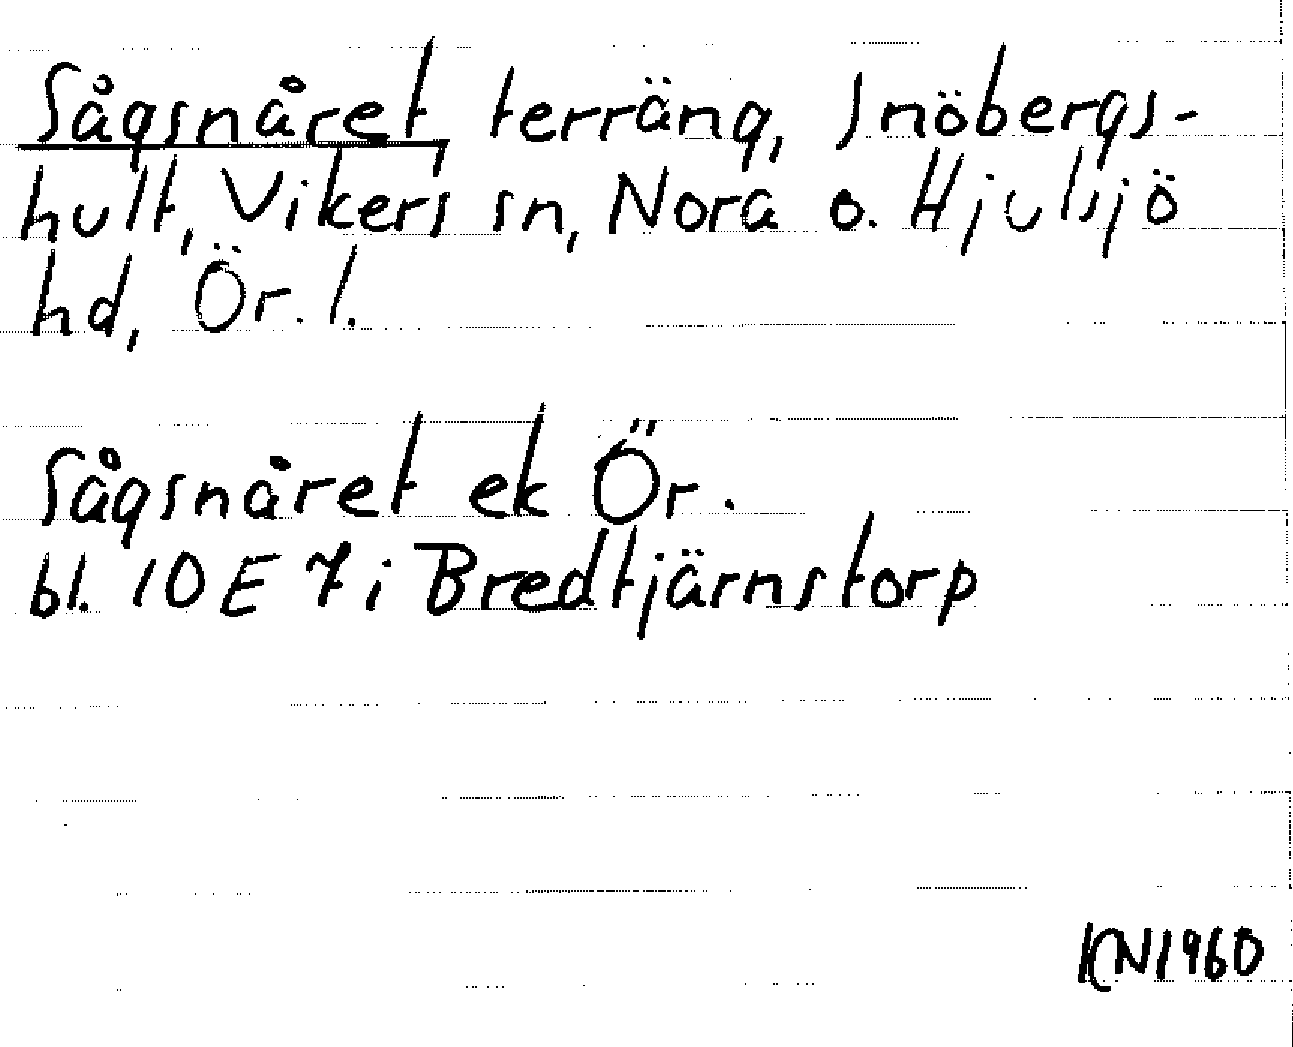 Sågsnåret terräng, Snöbergs-
hult, Vikers sn, Nora o. Hjulsjö
hd, Ör. l.
Sågsnåret ek Ör.
bl. 10 E 7 i Bredtjärnstorp
KN 1960